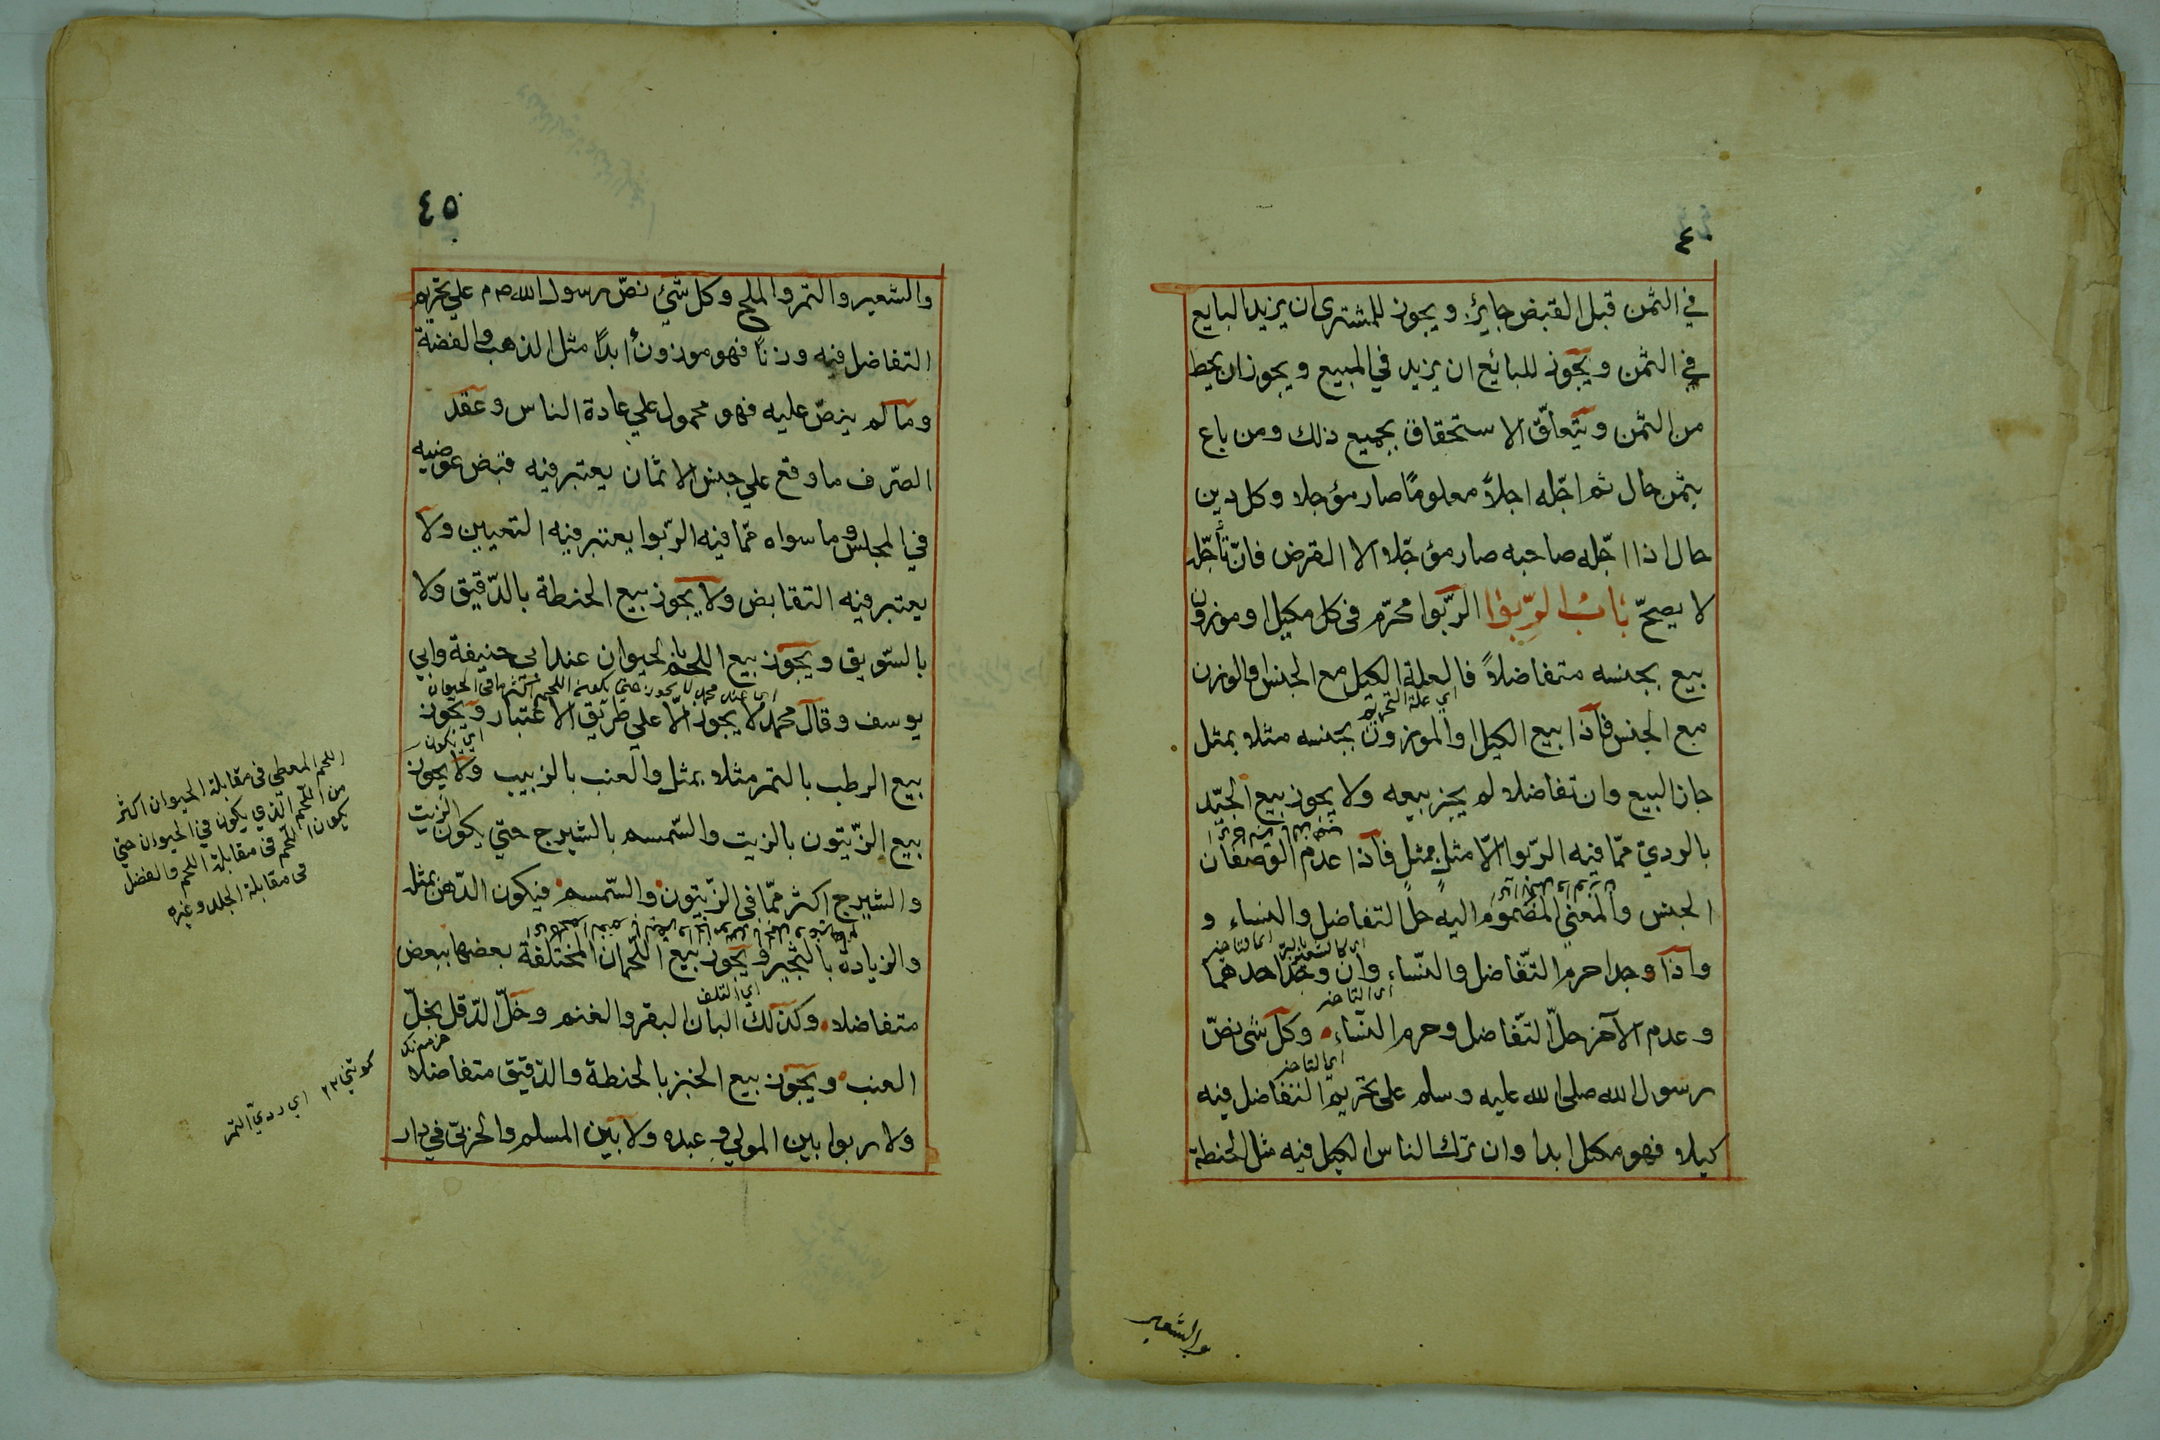 في الثمن قبل القبض جايز ويجوز للمشترى ان يزيد البايع
في الثمن ويجوز للبائع ان يزيد في المبيع ويجوز ان يحط
من الثمن ويتعلّق الاستحقاق بجميع ذلك ومن باع
بثمن حال ثم اجّله اجلاً معلومًا صار مؤجلا وكل دين
حال اذا اجّله صاحبه صار مؤجّلا الا القرض فانّ تأجّله
لا يصحّ بَابُ الرِّبوا الرّبوا محرّم فى كل مكيل او موزون
بيع بجنسه متفاضلاً فالعلة الكيل مع الجنس والوزن
اي علة التحريم
مع الجنس فاذا بيع الكيل او الموزون بجنسه مثلا بمثل
جاز البيع وان تفاضلا لم يجز بيعه ولا يجوز بيع الجيّد
بالردي ممّا فيه الرّبوا الّا مثلٍ بمثلٍ فاذا عدم الوصفان
الجنس والمعنى المضموم اليه حلّ التفاضل والنساء و
واذا وجدا حرم التّفاضل والنّساء وان وجد احدهما
اى التاخير
وعدم الآخر حلّ التّفاضل وحرم النّساء وكل شى نصّ
اى التاخير
رسول الله صلى الله عليه وسلم على تحريم التفاضل فيه
كيلا فهو مكيل ابدا وان ترك الناس الكيل فيه مثل الحنطة
والشعير
٤٥
والشعير والتمر والملح وكل شئ نصّ رسول الله ص م علي تحريم
التفاضل فيه وزناً فهو موزون أبداً مثل الذهب والفضة
وما لم ينصّ عليه فهو محمول علي عادة الناس وعقد
الصّرف ما وقع علي جنس الاثمان يعتبر فيه قبض عوضيه
في المجلس وما سواه ممّا فيه الرّبوا يعتبر فيه التعيين ولا
يعتبر فيه التقابض ولا يجوز بيع الحنطة بالدّقيق ولا
بالسّويق ويجوز بيع اللحم بالحيوان عند ابى حنيفة وابي
اي عند محمد لا يجوز حتى يكون اللحم اكثر ما في الحيوان
يوسف وقال محمد لا يجوز الّا علي طريق الاعتبار ويجوز
بيع الرطب بالتمر مثلا بمثل والعنب بالزبيب ولا يجوز
بيع الزّيتون بالزيت والسّمسم بالشيرج حتي يكون الزيت
والشيرج اكثر ممّا فى الزّيتون والسّمسم فيكون الدّهن بمثله
والزيادة بالثجير ويجوز بيع اللّحمان المختلفة بعضها ببعض
متفاضلا وكذلك البان البقر والغنم وخلّ الدّقل بخلّ
العنب ويجوز بيع الخبز بالحنطة والدّقيق متفاضلا
ولا ربوا بين المولي وعبده ولا بين المسلم والحربيّ في دار
اللحم المعطى فى مقابلة الحيوان اكثر
من اللّحم الذي يكون في الحيوان حتي
يكون اللّحم فى مقابلة اللحم والفضل
فى مقابلة الجلد وغيره
اي ردىّ التمر